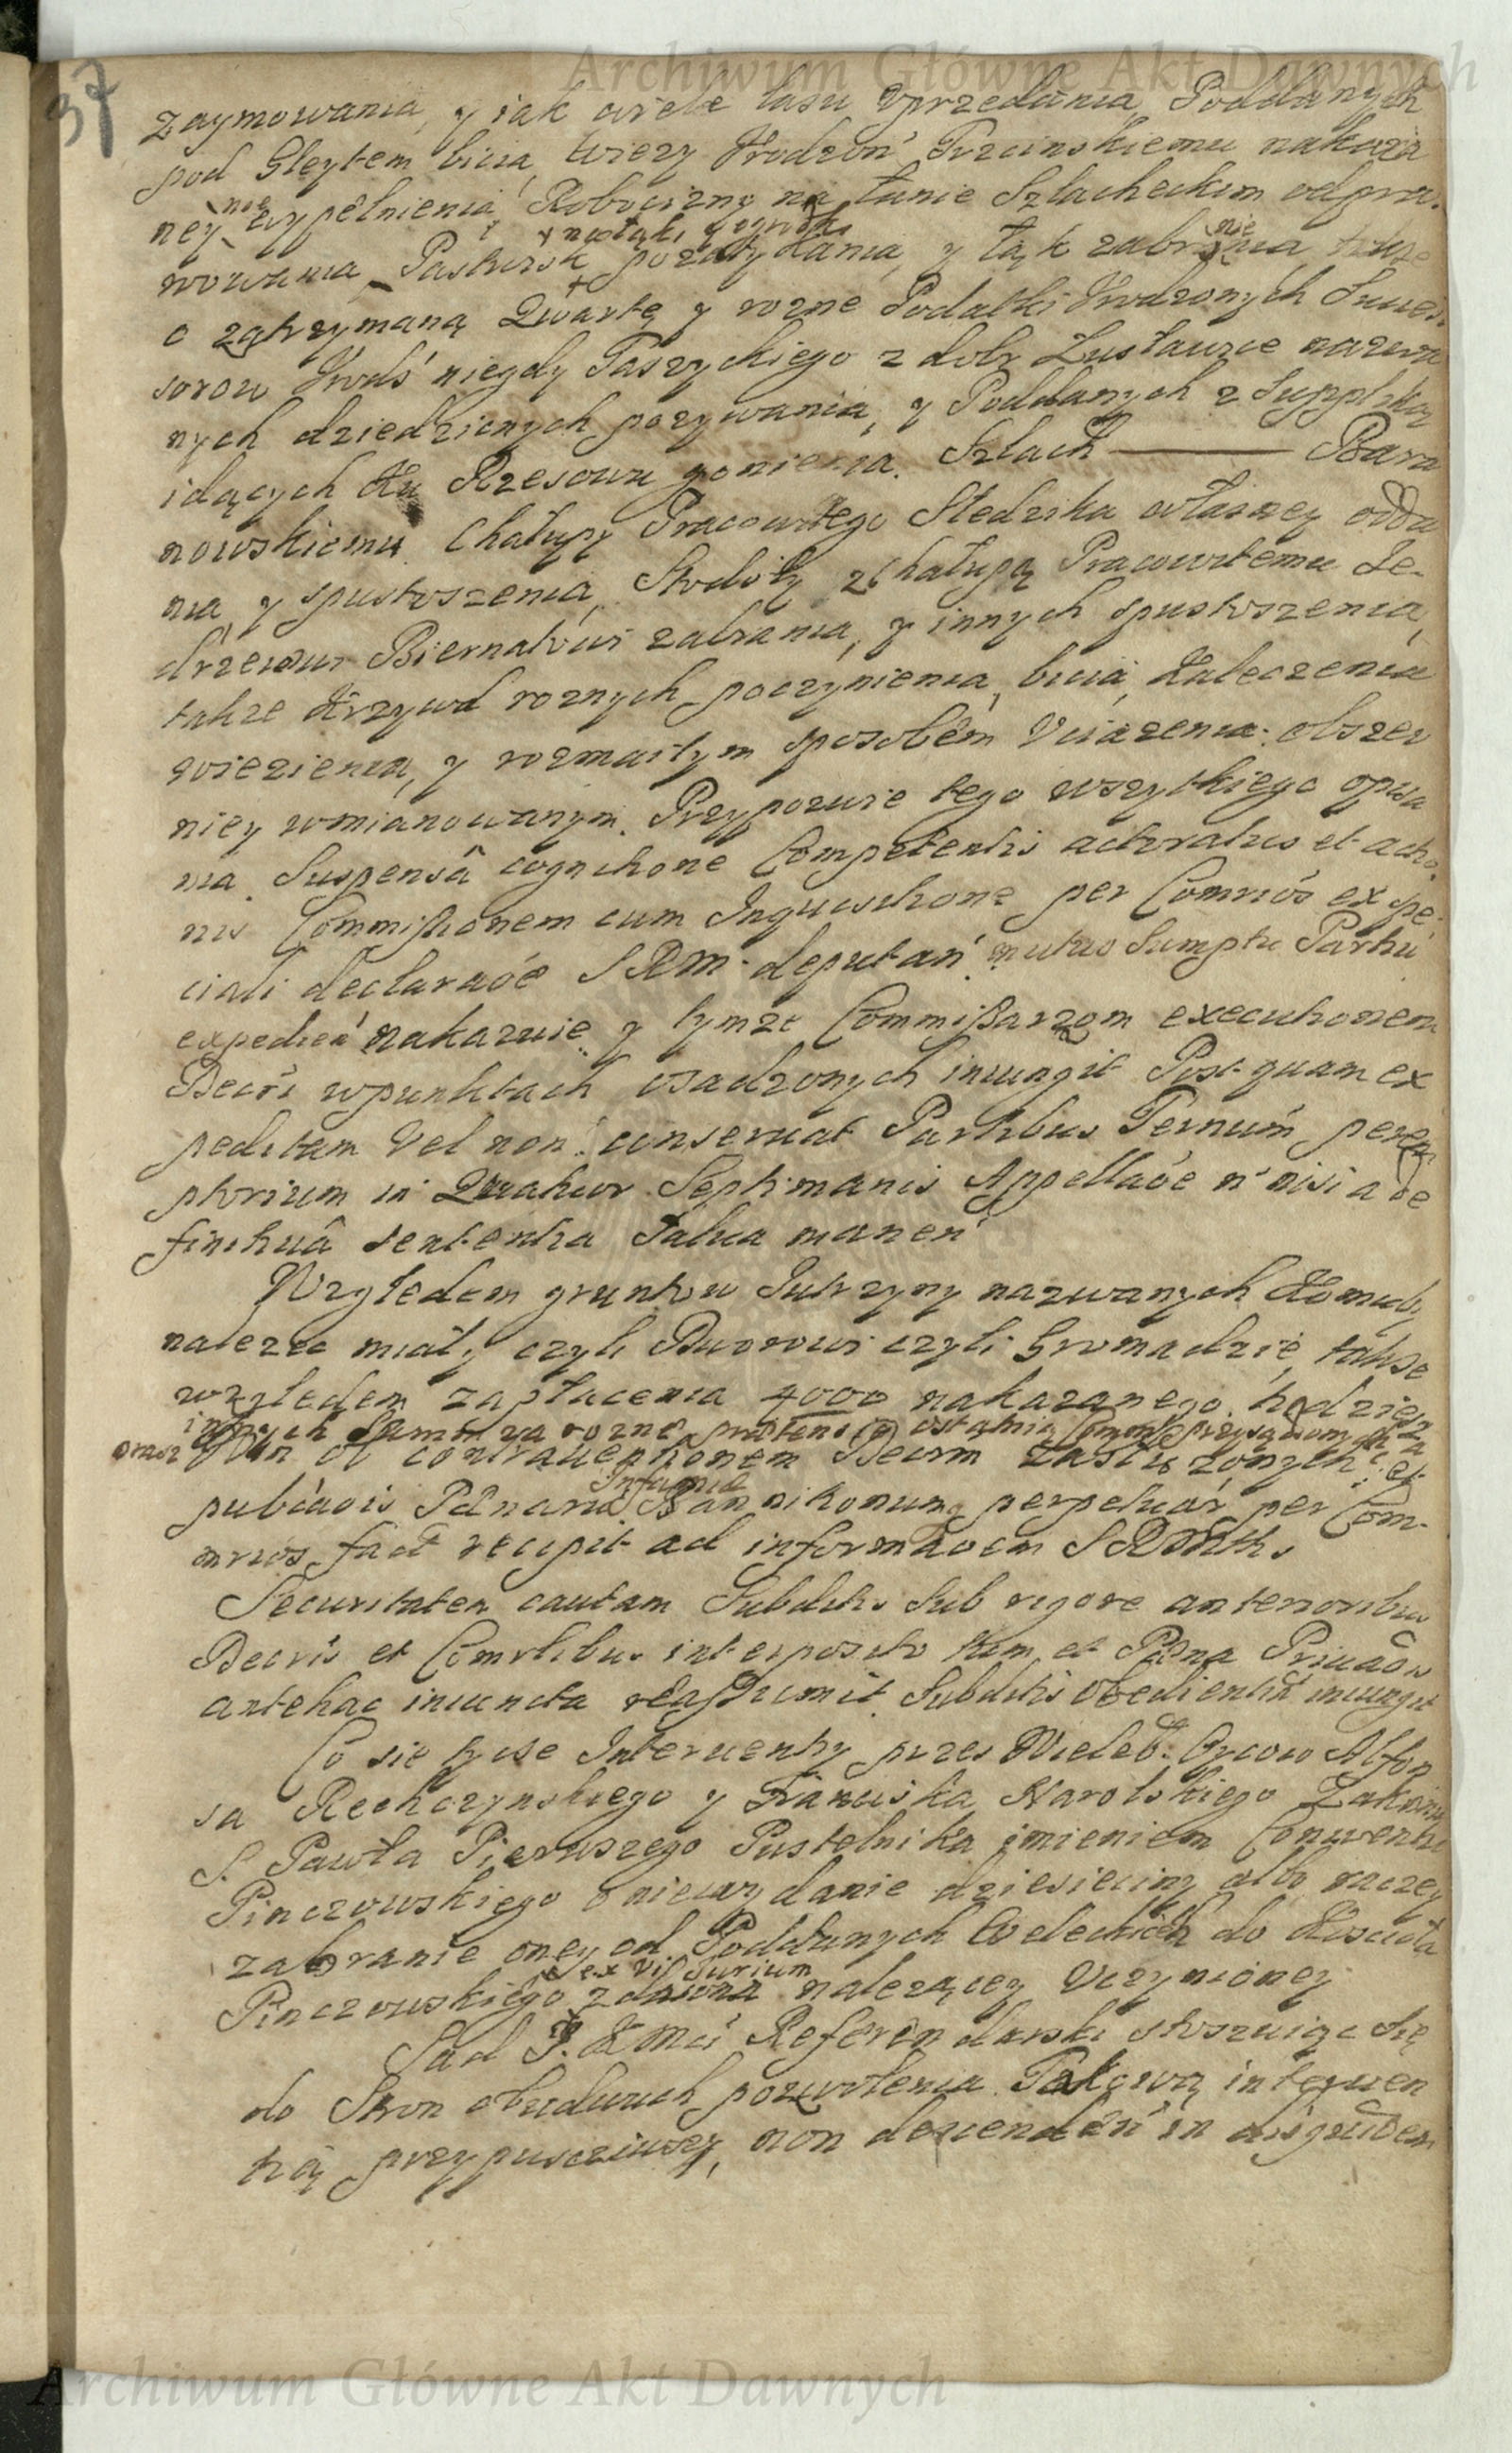 Archiwum Główne Akt Dawnych
37
zaymowania, y iak wiele lasu Vprzedania, Poddanych
pod Gleytem bicia, wiezy Vrodzoń Trzcinskiemu nakaza
ney nie wypełnienia, Robocizny na łanie Szlacheckim odpra-
wowania, Pastwisk y na łąki y ogrody pozaty kania, y łąk zabronienia także
o zatrzymaną Kwartę y rozne Podatki Vrodzonych Sucess
sorow Vrodź niegdy Taszyckiego z dobr Lusławice nazwa
nych dziedzicznych pozywania, y Poddanych z Suppliką
idących Ku Rzesowu gonienia. Szlach ——— Bara
nowskiemu Chałupy Pracowitego Sledzika własney odda
nia y spustoszenia, Stodoły z Chałupą Pracowitemu Je-
drzeiowi Biernatowi zabrania, y innych spustoszenia,
takze Krzywd roznych poczynienia, bicia, kaleczenia
wiezienia, y rozmaitym sposobem Vciazenia obszer
niey wmianowanym. Przypozwie tego wszytkiego opwa
nia Suspensâ cognitione Competentis actoratus et actio
nis Commissionem cum Inquisitione per Comrios ex spe
ciali declaraôe S R M deputań mutuo Sumptu Partiú
expedień nakazuie y tymze Commissarzom executionem
Decri wpunktach osadzonych iniungit Post quam ex
peditam Vel non conservat Partibus Ternum perem
ptorium in Quatuor Septimanis Appellaôe n nisi a de
finitivâ sententia Salva maneń
Względem gruntow Jutrzyny nazwanych Komuby
nalezec miały czyli Dworowi czyli Gromadzie, takze
względem zapłacenia 4000 nakazanego
innych Summ za rozne pretensie ostatnią Commis przysądzonych
oraz Pan ob contraventionem Decrm zasłużonych et
publicaôis Pænarú Infamiæ Bannitionum perpetuar per Com-
mrios fact recipit ad informaôem S R Mttis
Securitatem cautam Subditis Sub rigore anterioribus
Decris et Comrtibus interposito tum et Pæna Privaôis
antehac iniuncta reassumit Subditis obedientiā iniungit
Co się tycze Interwenty przez Wieleb. Oycow Alfon
sa Rechczynskiego y Franciszka Narolskiego Zakonu
S. Pawła Pierwszego Pustelnika imieniem Conwentu
Pinczowskiego o niewydanie dziesieciny albo raczey
zabranie oney od Poddanych Wieleckich do Koscioła
Pinczowskiego ex Vi Jurium zdawna nalezącey Vczynioney
Sąd J. K Mci Referendarski stosuiąc się
do Stron obudwuch pozwolenia Takową interwen
tią przypusciwszy, non devenden in disjudicam
Archiwum Główne Akt Dawnych